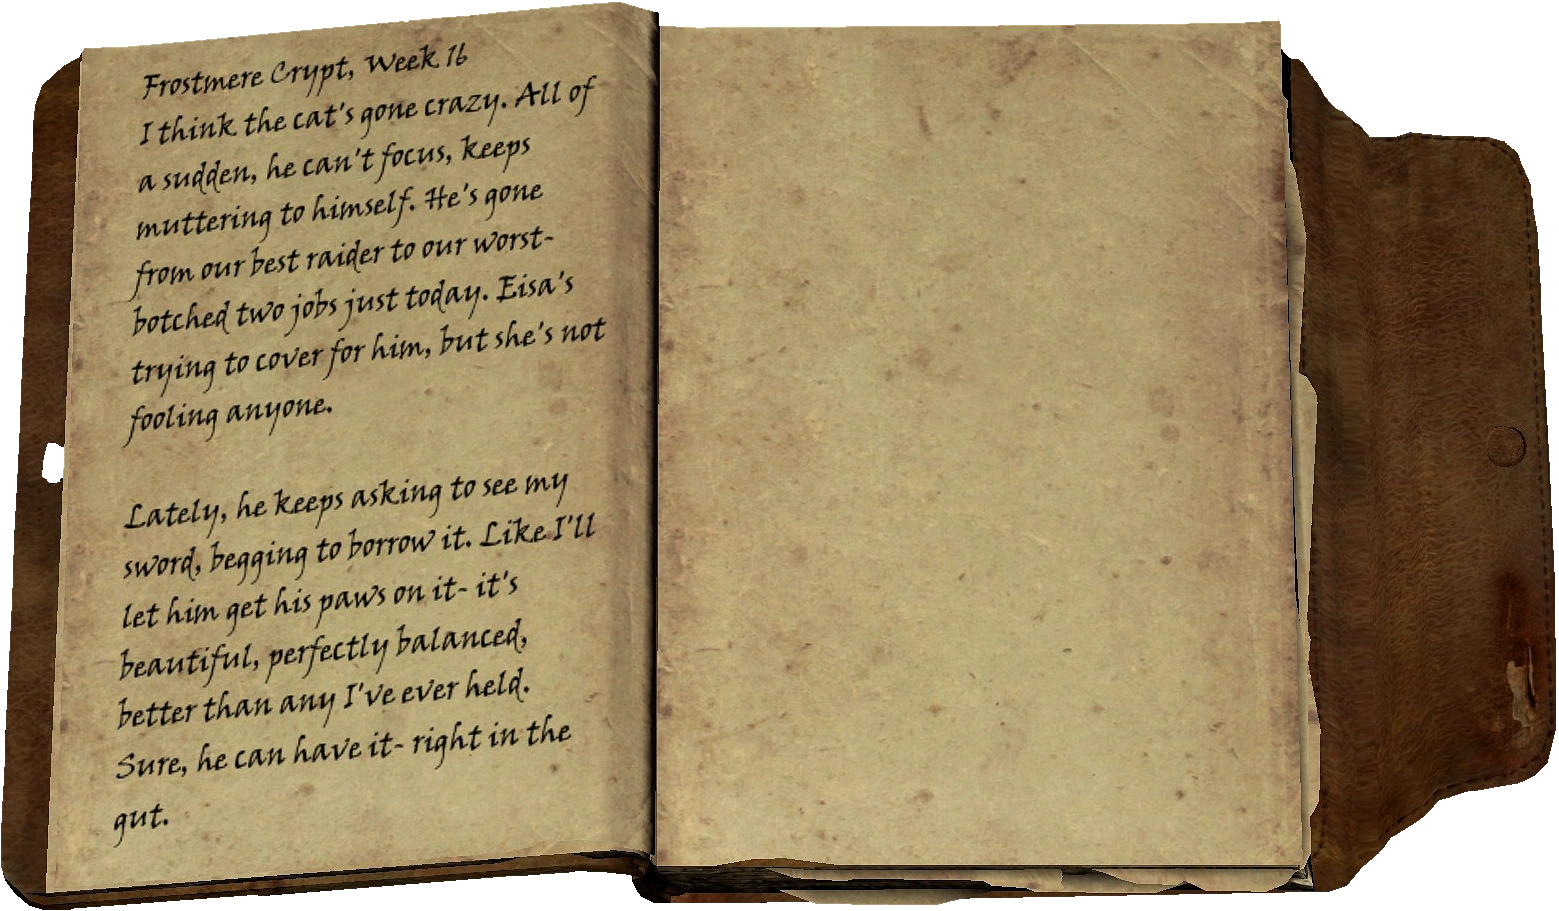 Frostmere Crypt, Week 16
I think the cat's gone crazy. All of
a sudden, he can't focus, keeps
muttering to himself. He's gone
from our best raider to our worst-
botched two jobs just today. Eisa's
trying to cover for him, but she's not
fooling anyone.
Lately, he keeps asking to see my
sword, begging to borrow it. Like I'll
let him get his paws on it- it's
beautiful, perfectly balanced,
better than any I've ever held.
Sure, he can have it- right in the
gut.